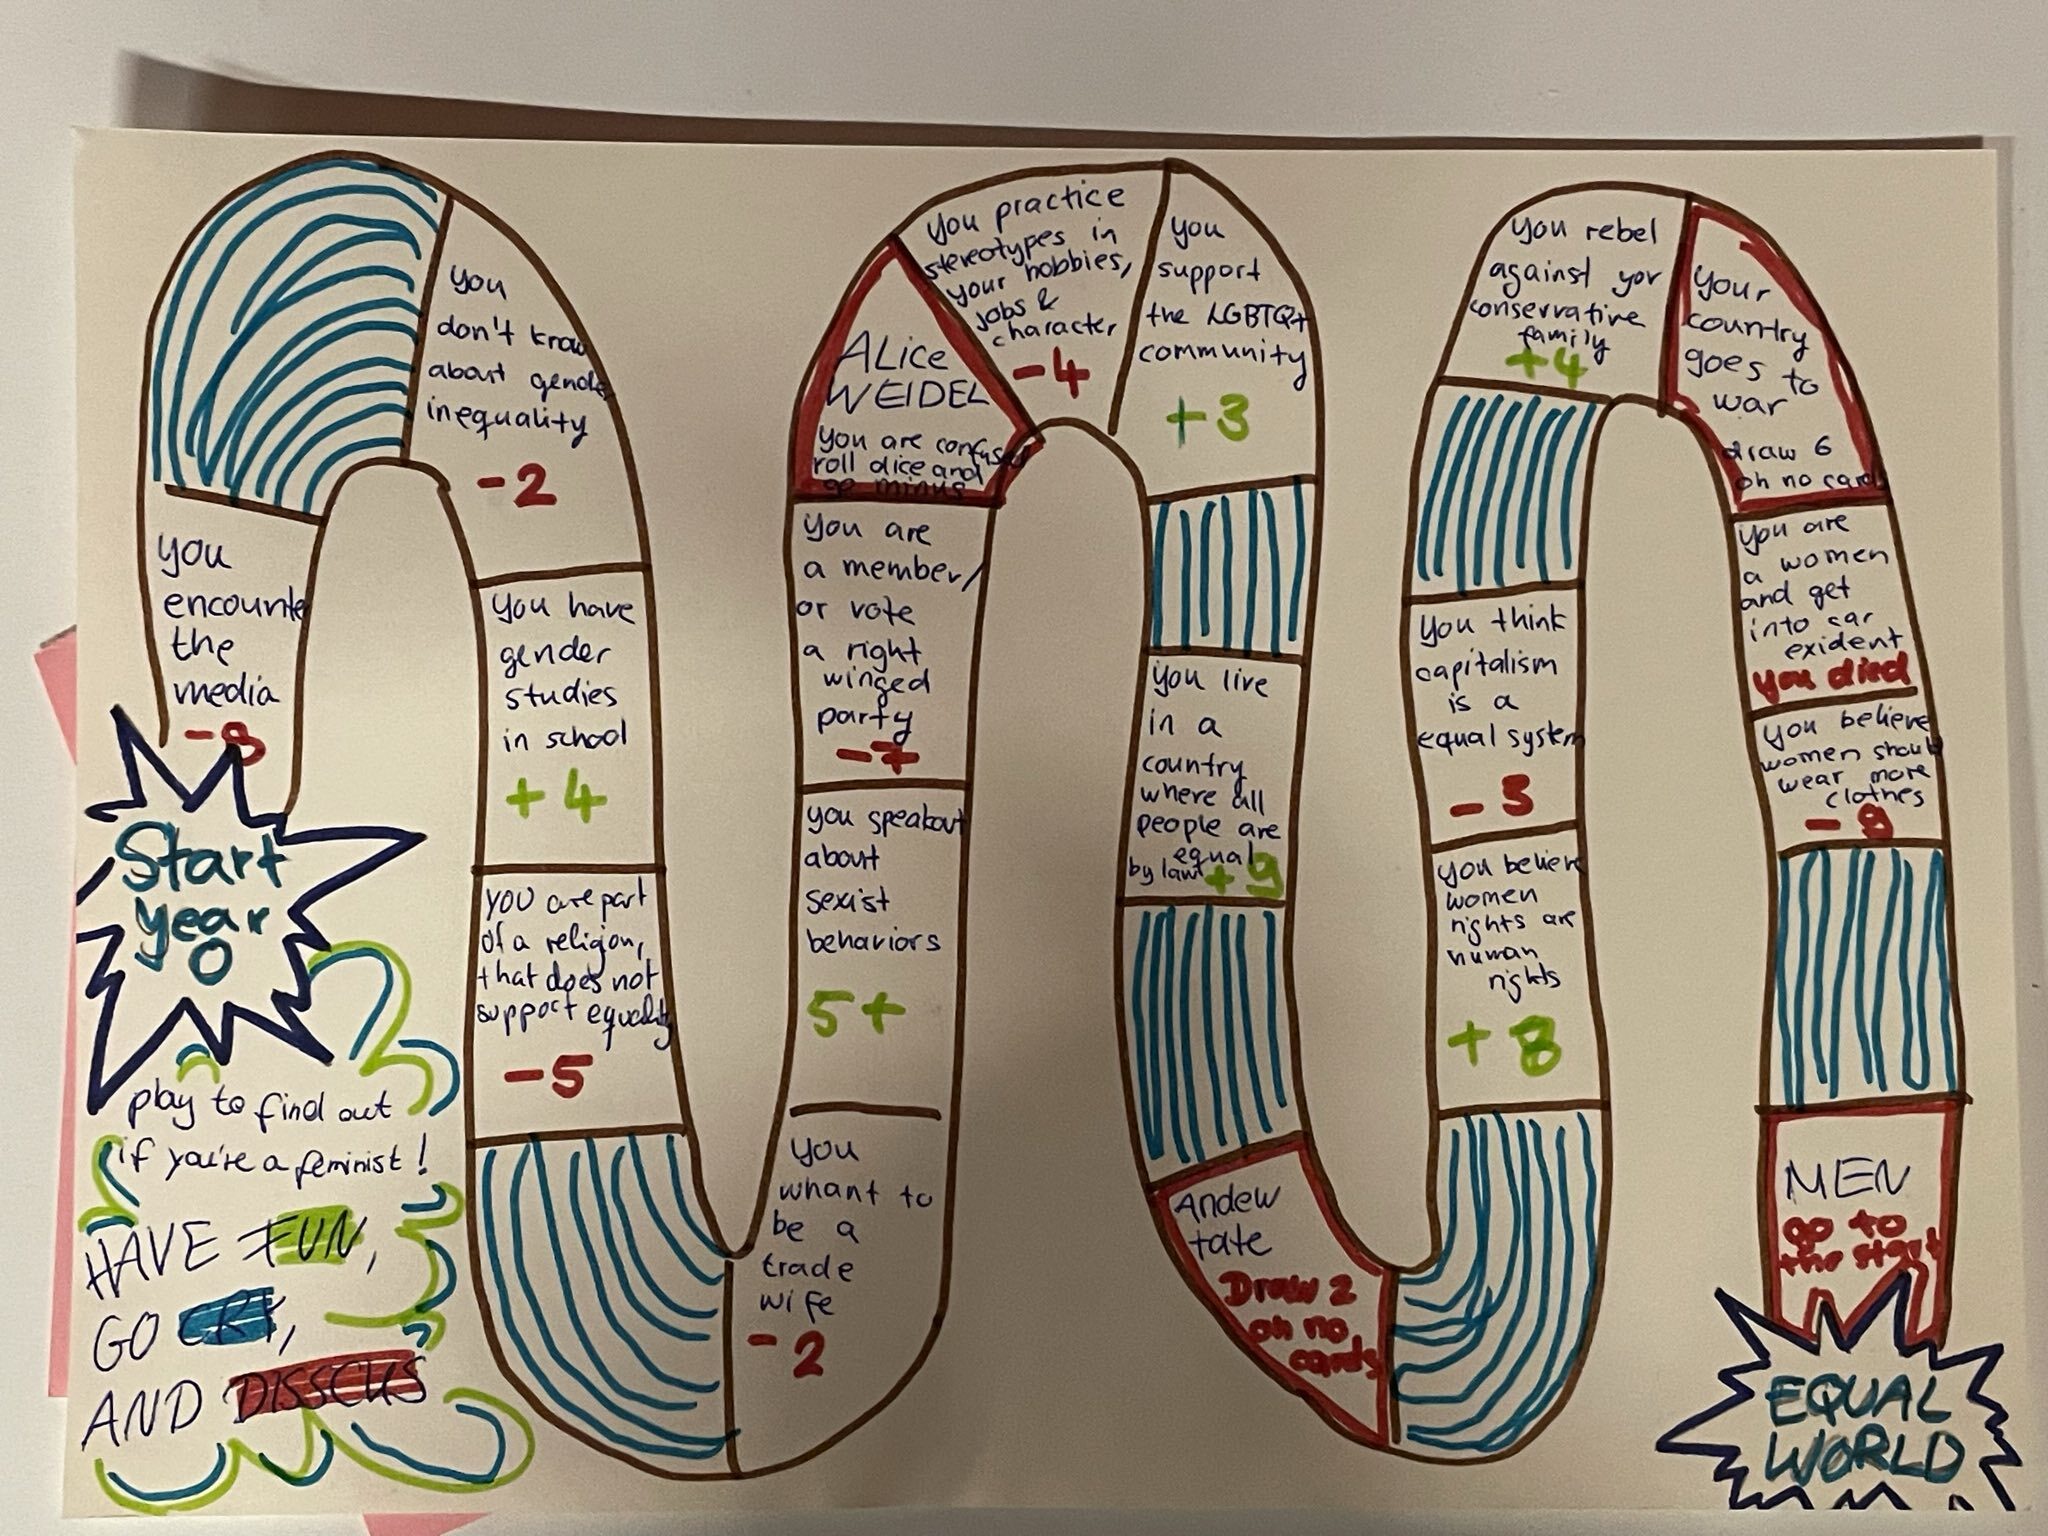 Start
year
0
play to find out
if you're a feminist!
HAVE FUN,
GO CRY,
AND DISSCUS
you
encounte
the
media
you
don't know
about gender
inequality
-2
you have
gender
studies
in school
+4
you are part
of a religion,
that does not
support equality
-5
you
whant to
be a
trade
wife
-2
you speakout
about
sexist
behaviors
5+
you are
a member/
or vote
a right
winged
party
-7
ALICE
WEIDEL
you are confused
roll dice and
go minus
you practice
stereotypes in
your hobbies,
jobs &
character
-4
you
support
the LGBTQ+
community
+3
you live
in a
country
where all
people are
equal
by law +9
Andew
tate
Draw 2
oh no
cards
you believe
women
rights are
human
rights
+8
you think
capitalism
is a
equal system
you rebel
against yor
conservative
family
+4
your
country
goes to
war
draw 6
oh no cards
you are
a women
and get
into car
exident
you died
you believe
women should
wear more
clothes
-9
MEN
go to
the start
EQUAL
WORLD